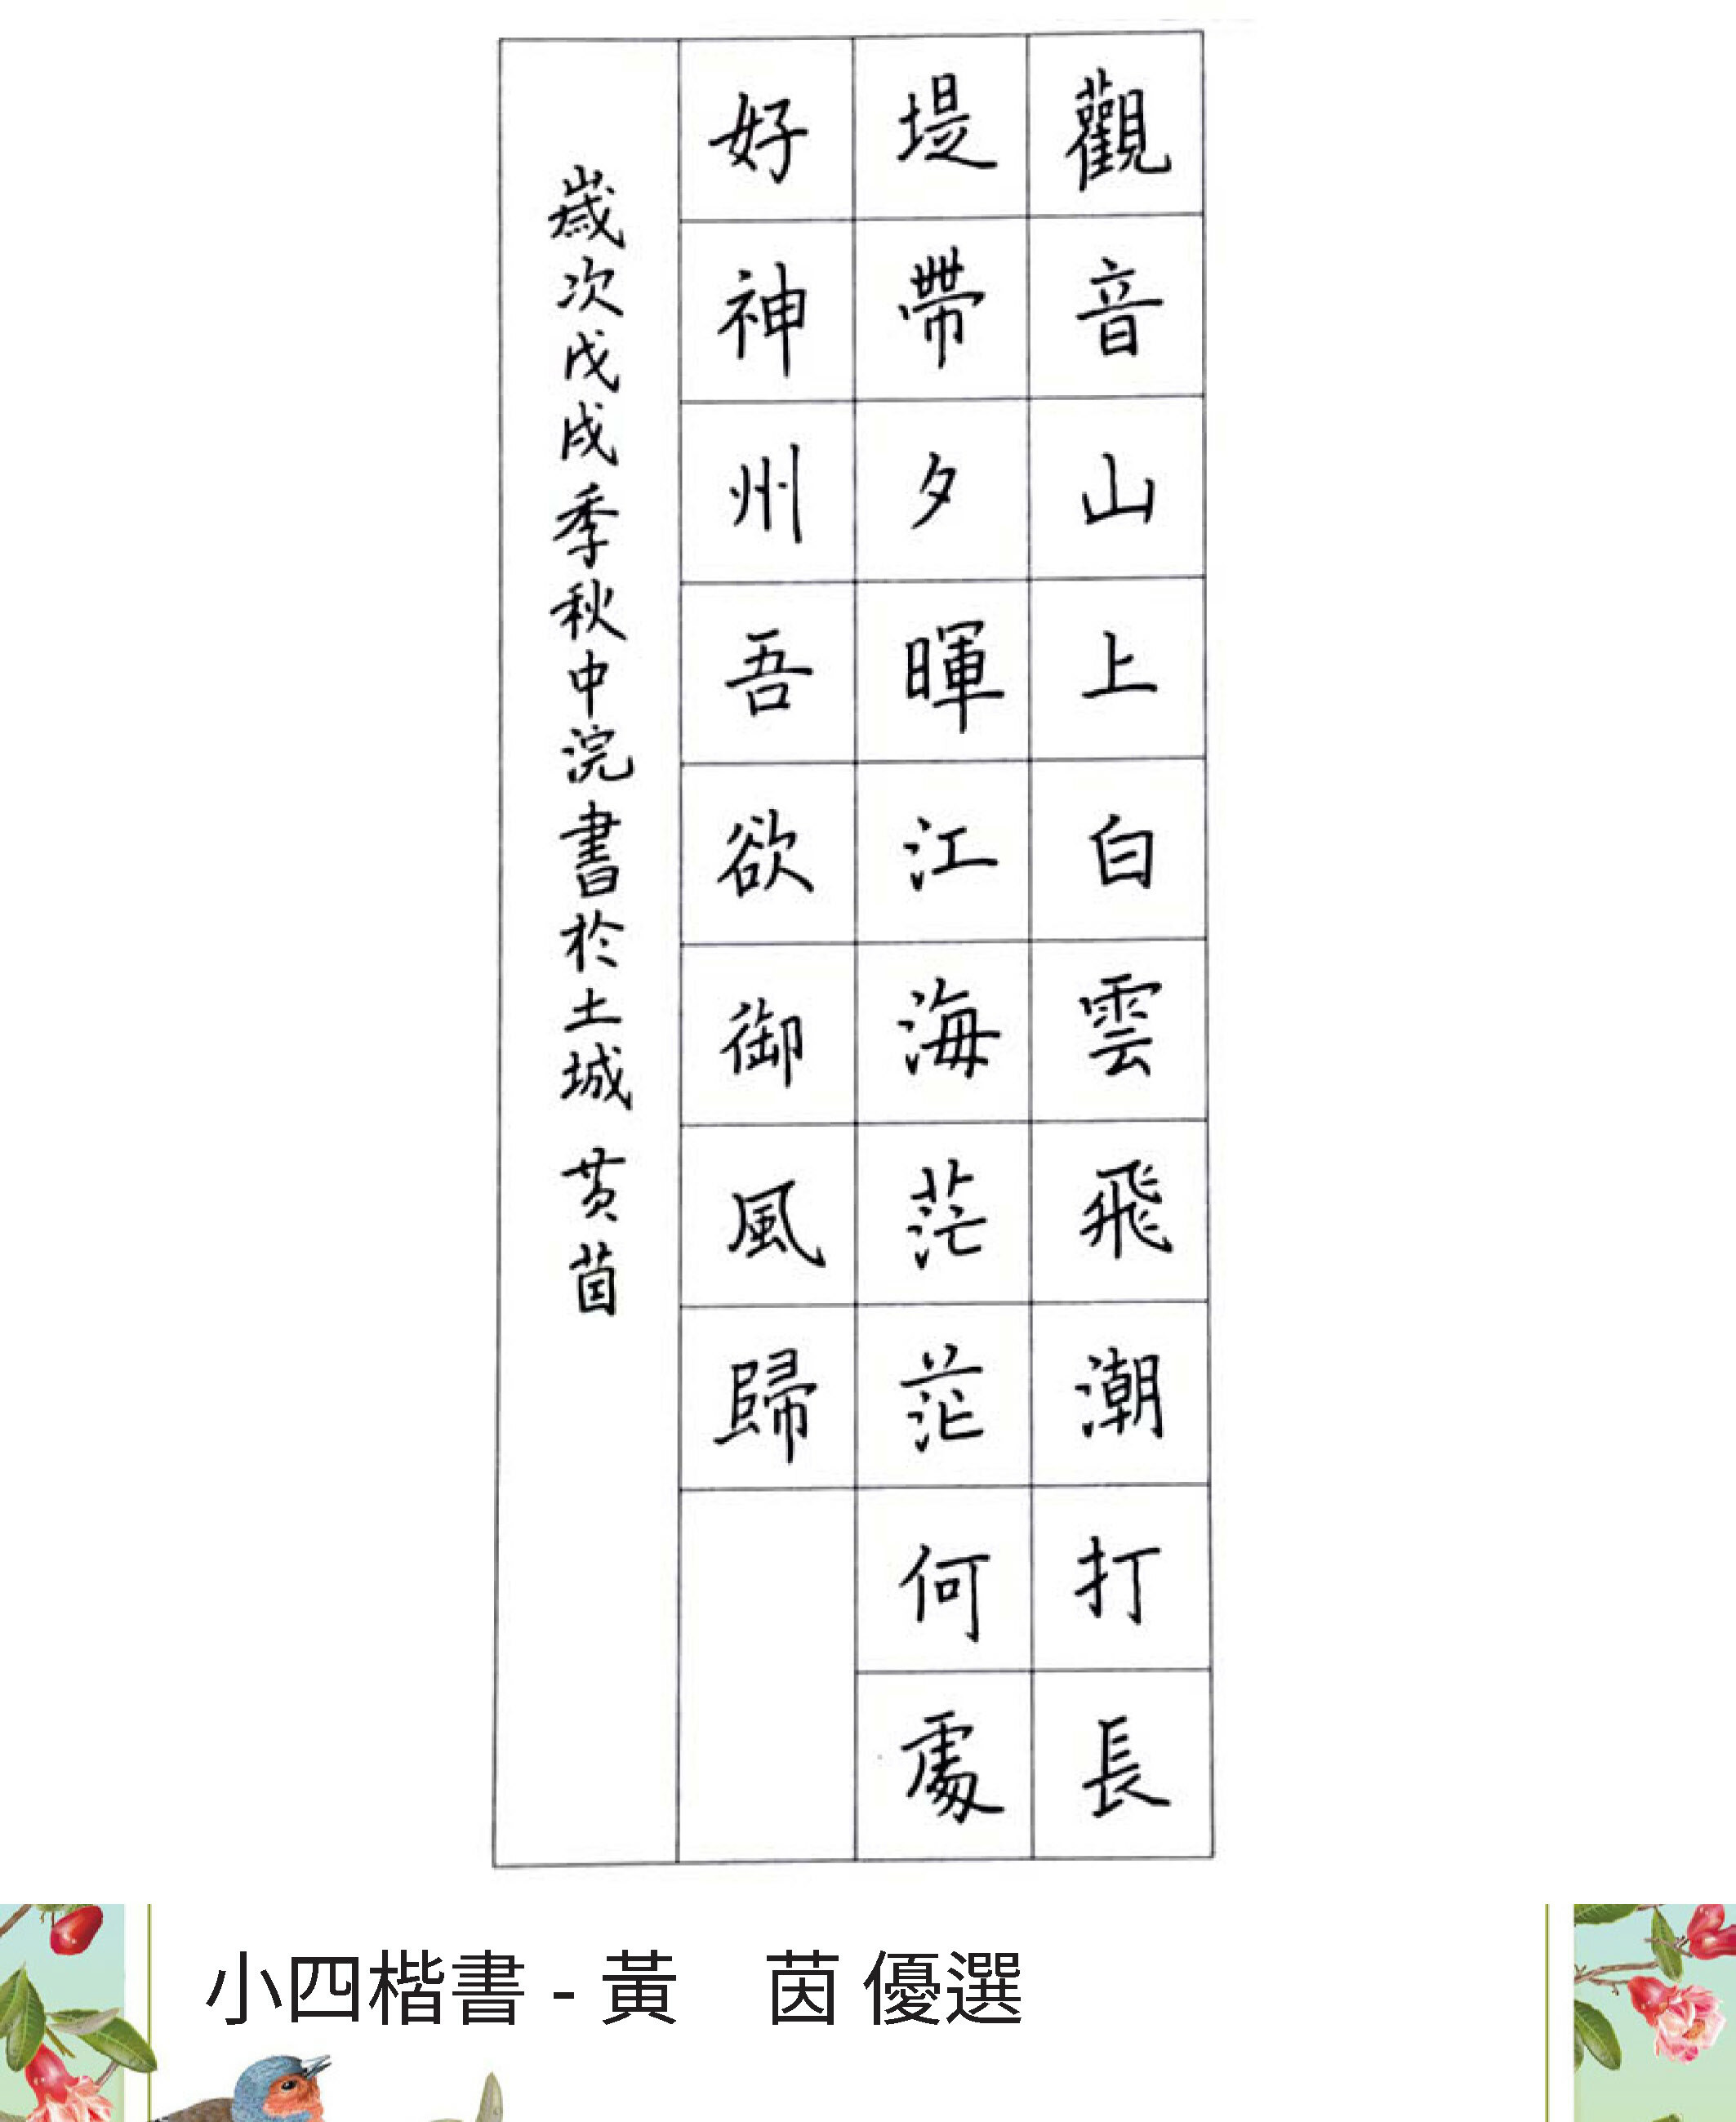 觀音山上白雲飛潮打長
堤帶夕暉江海茫茫何處
好神州吾欲御風歸
歲次戊戌季秋中浣書於土城 黃茵
小四楷書 - 黃　茵 優選